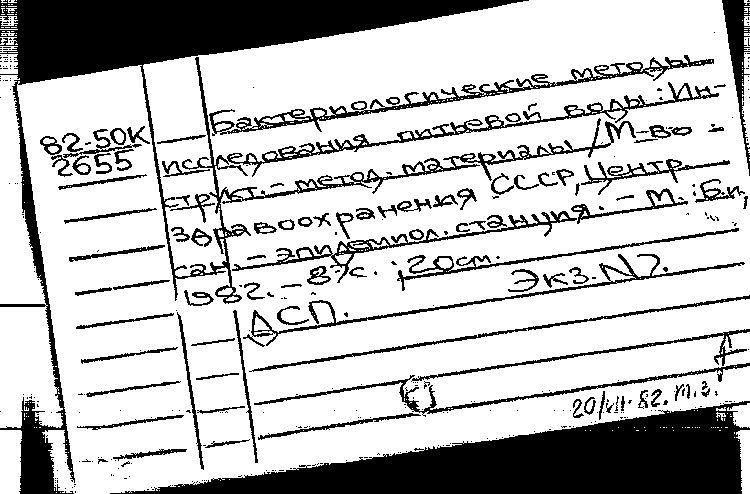 82-50К
2655
Бактериологические методы
исследования питьевой воды: Ин-
структ.- метод. материалы / М-во
здравоохранения СССР, Центр.
сан.- эпидемиол. станция. - М.: Б.и.,
1982. - 87с. ; 20см.
Экз. N7.
ДСП.
20/VII-82. т.з.